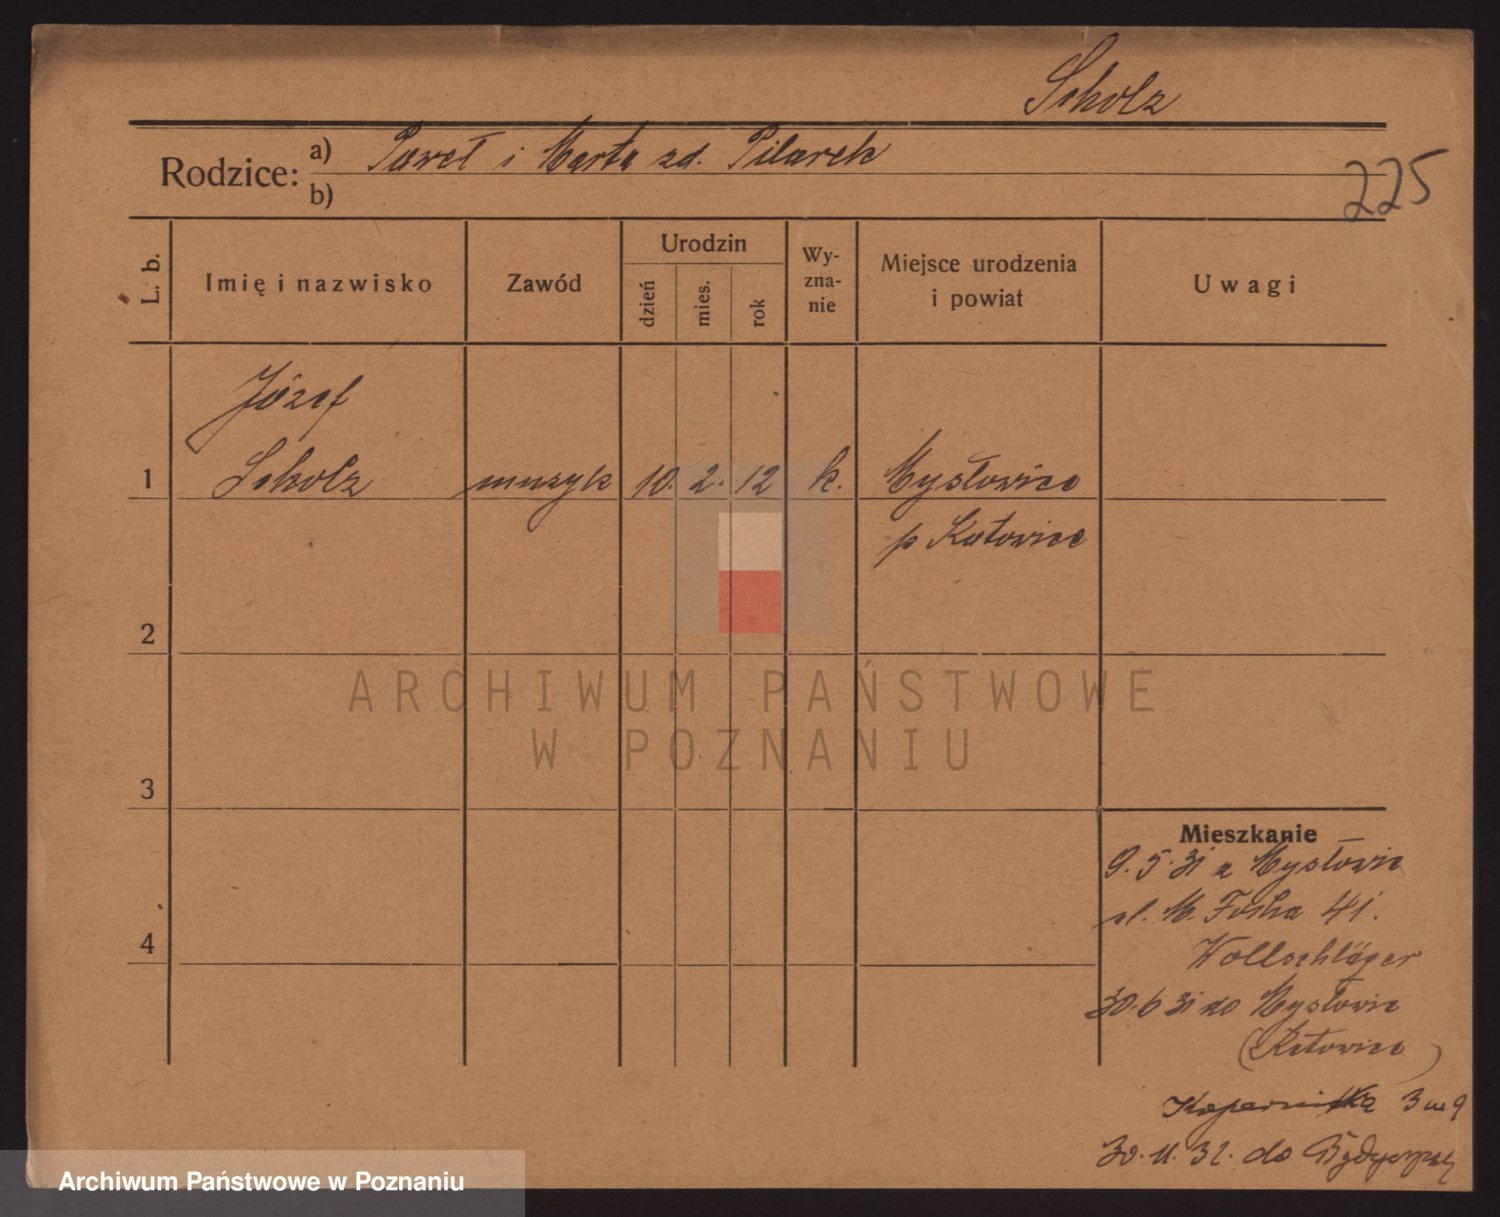 Scholz
Rodzice: a) Paweł i Marta zd. Pilarek
b)
225
L. b.
Imię i nazwisko
Zawód
Urodzin
dzień
mies.
rok
Wy-
zna-
nie
Miejsce urodzenia
i powiat
Uwagi
Józef
1 Scholz muzyk 10. 2. 12 k. Mysłowice
p Katowice
2
3
4
Mieszkanie
9.5.31 z Mysłowic
ul. M. Focha 41.
Wollschläger
30.6 31 do Mysłowic
(Katowice)
Kopernika 3 m 9
30.11.32. do Bydgoszczy
ARCHIWUM PAŃSTWOWE
W POZNANIU
Archiwum Państwowe w Poznaniu